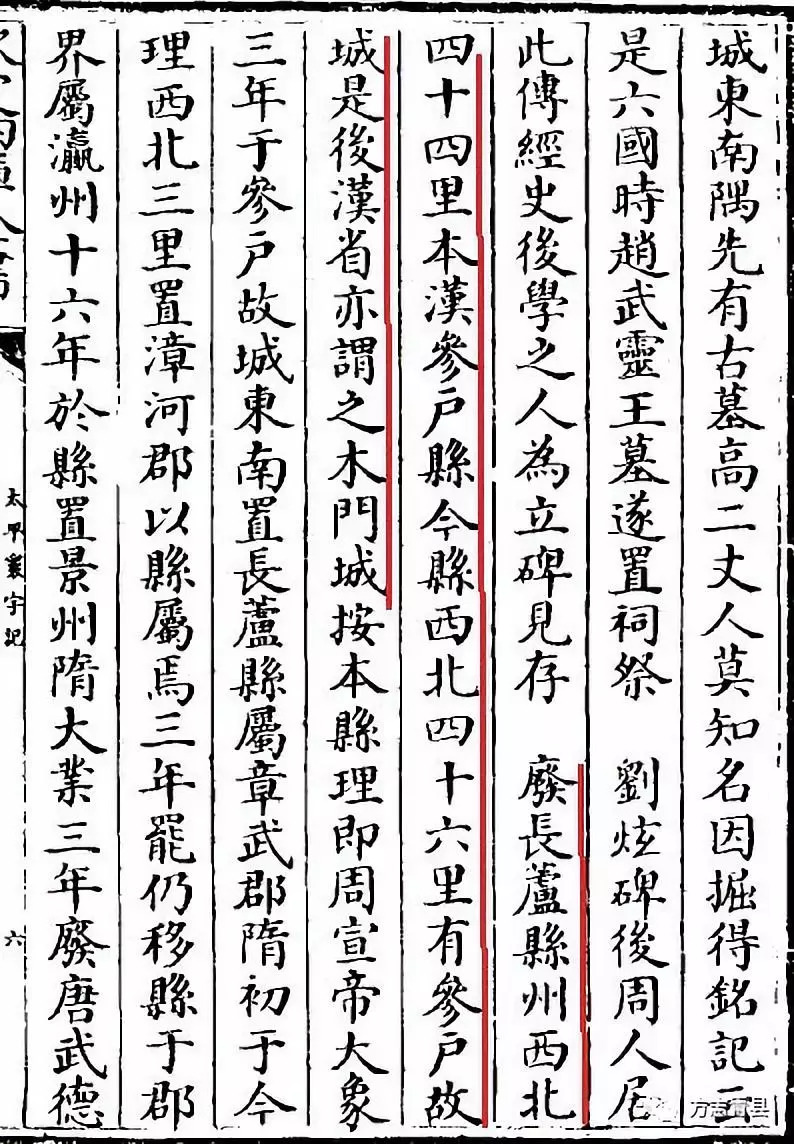 城東南隅先有古墓高二丈人莫知名因掘得銘記云
是六國時趙武靈王墓遂置祠祭　劉炫碑後周人居
此傳經史後學之人為立碑見存　廢長蘆縣州西北
四十四里本漢參戶縣今縣西北四十六里有參戶故
城是後漢省亦謂之木門城按本縣理即周宣帝大象
三年于參戶故城東南置長蘆縣屬章武郡隋初于今
理西北三里置漳河郡以縣屬焉三年罷仍移縣于郡
界屬瀛州十六年於縣置景州隋大業三年廢唐武德
太平寰宇記
六
方志黄县